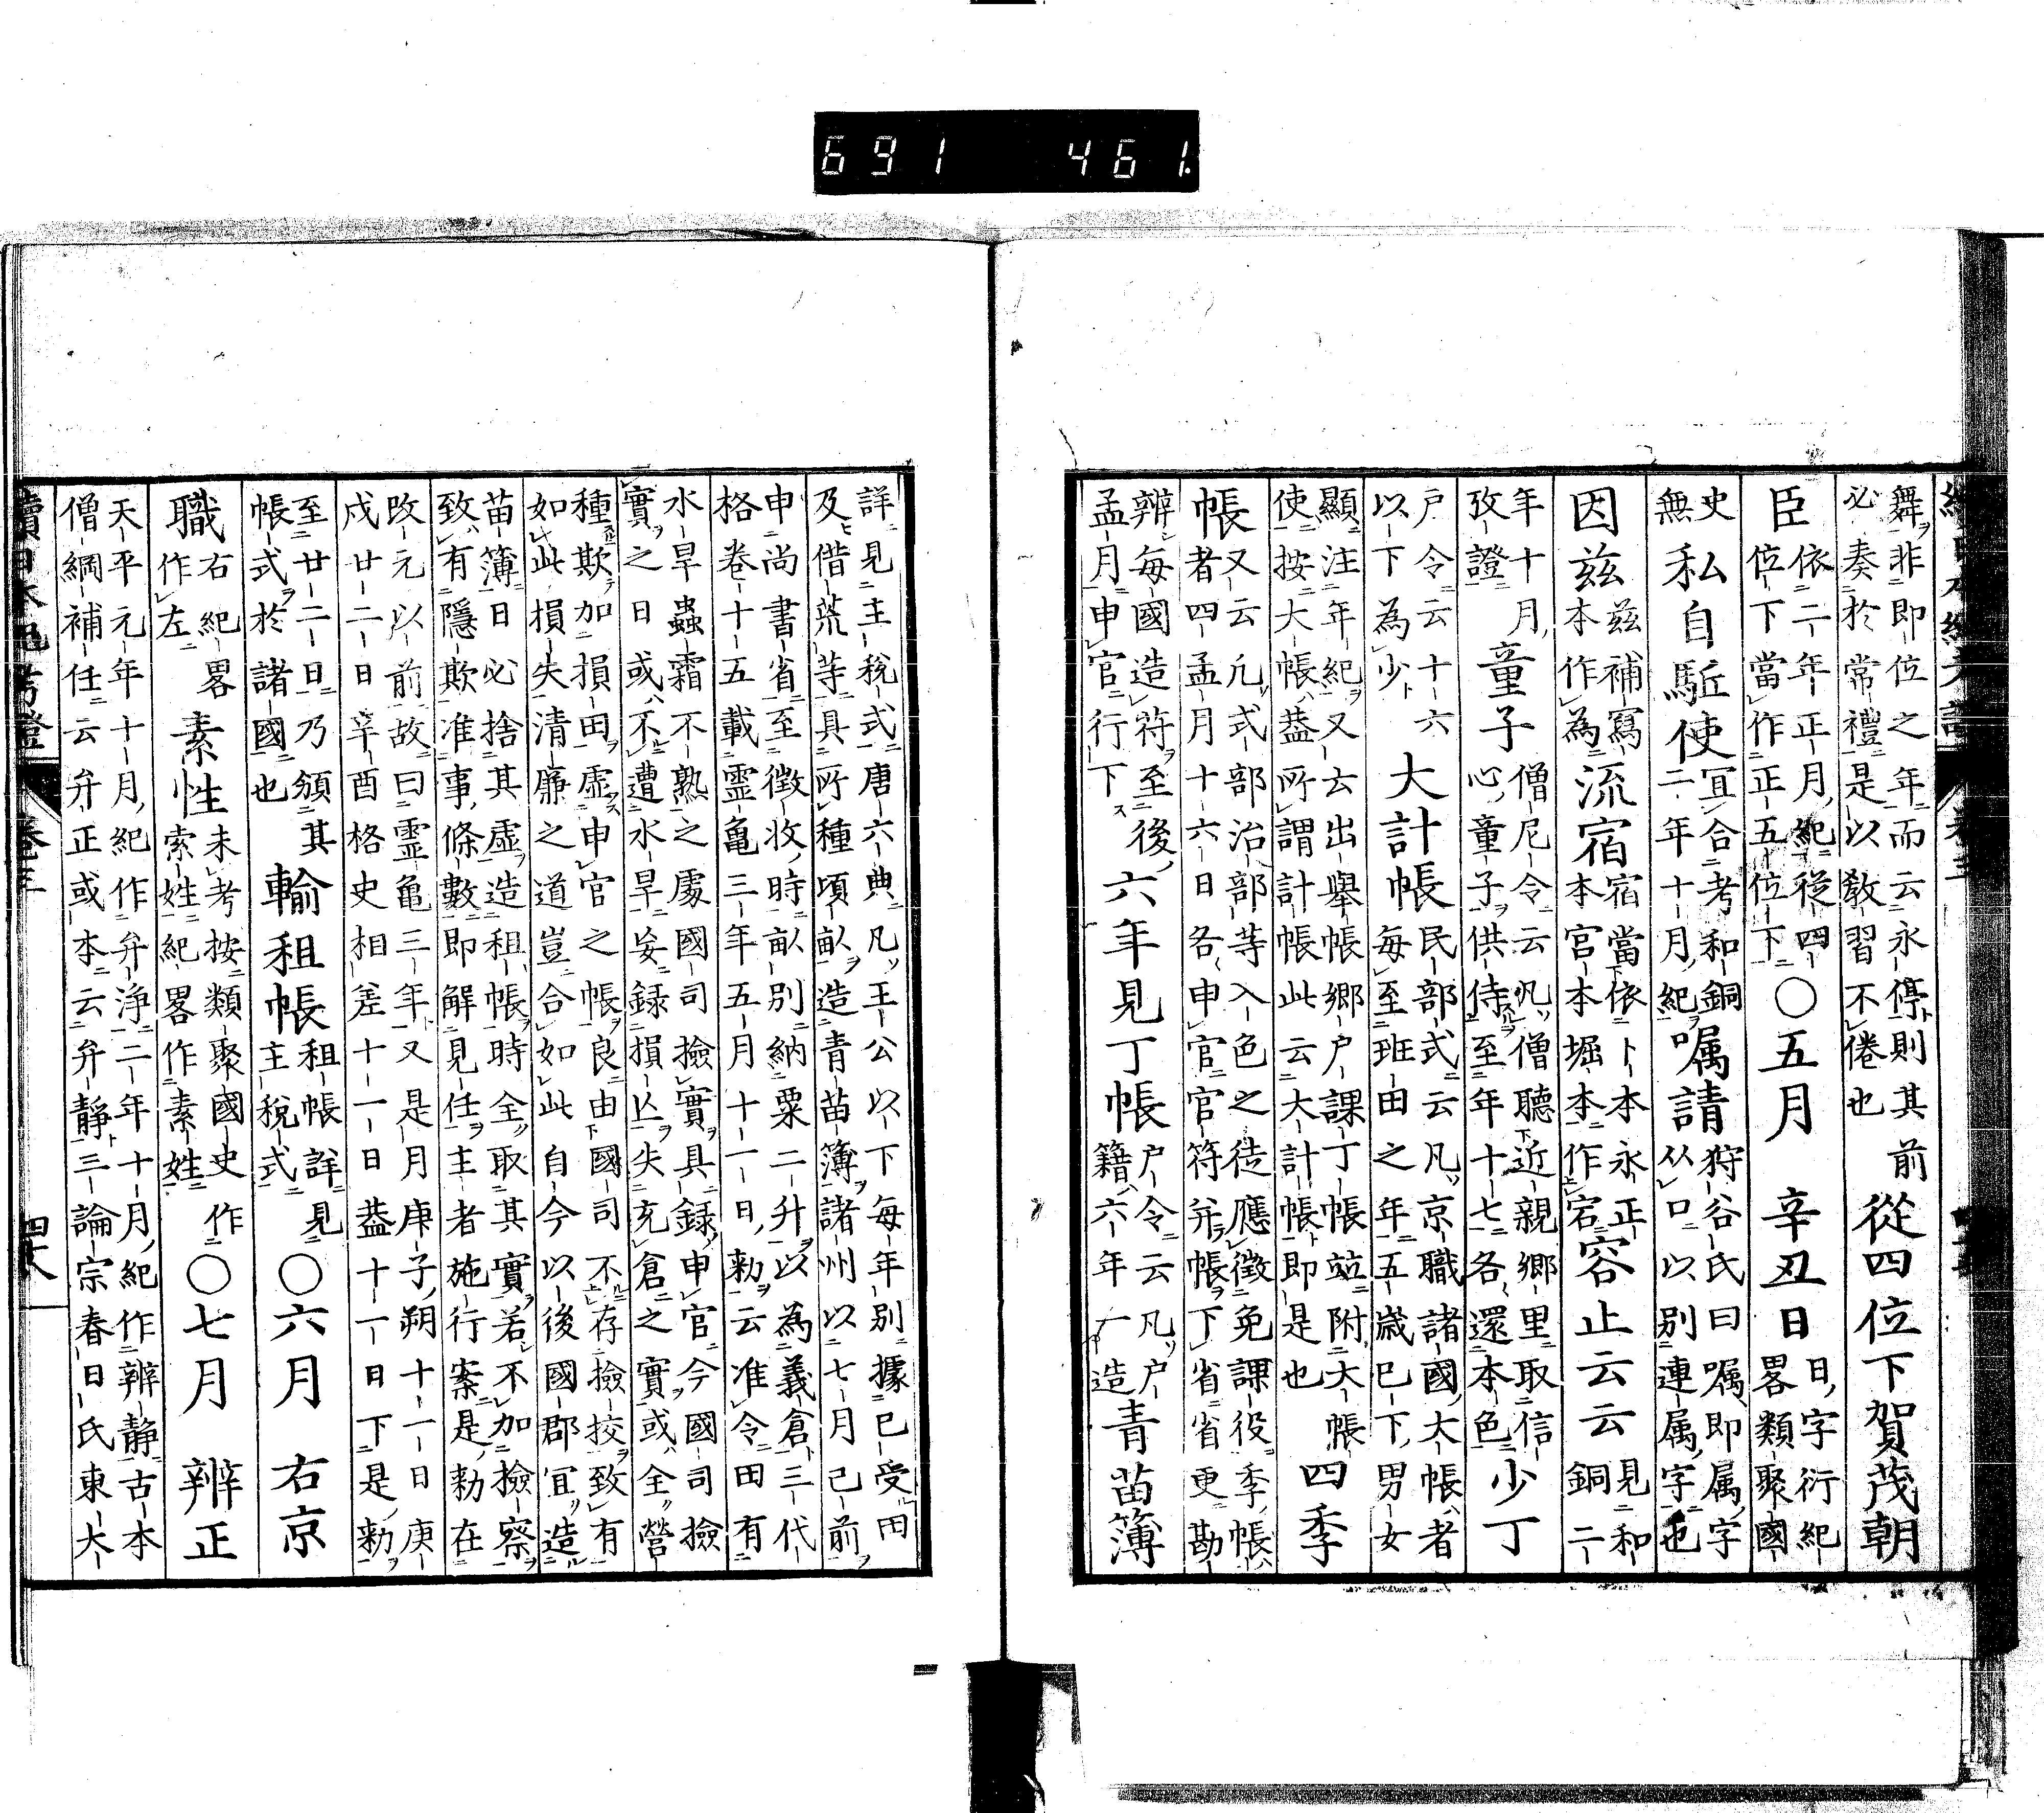 舞非即位之年而云永停則其前
必奏於常禮是以敎習不倦也
從四位下賀茂朝
臣
依二年正月紀從四
位下當作正五位下
〇五月　辛丑日
日字衍紀
畧類聚國
史
無
私自駈使
冝合考和銅
二年十月紀
嘱請
狩谷氏曰嘱即属字
从口以別連属字也
因兹
兹補寫
本作為
流宿
宿當依卜本永正
本宮本堀本作宕
容止云云
見和
銅二
年十月
攷證
童子
僧尼令云凡僧聽近親鄉里取信
心童子供侍至年十七各還本色
少丁
户令云十六
以下為少
大計帳
民部式云凡京職諸國大帳者
每至班田之年五歲已下男女
顯注年紀又云出舉帳鄉户課丁帳竝附大帳
使按大帳蓋所謂計帳此云大計帳即是也
四季
帳
又云凡式部治部等入色之徒應徵免課役季帳
者四孟月十六日各申官官符弁帳下省省更勘
辨每國造符至後
孟月申官行下
六年見丁帳
户令云凡户
籍六年一造
青苗簿
詳見主稅式唐六典凡王公以下每年別據已受田
及借荒等具所種頃畝造青苗簿諸州以七月已前
申尚書省至徵收時畝別納粟二升以為義倉三代
格卷十五載靈龜三年五月十一日勅云准令田有
水旱蟲霜不熟之處國司撿實具錄申官今國司撿
實之日或不遭水旱妄録損亡失充倉之實或全營
種欺加損田虛申官之帳良由國司不存撿挍致有
如此損失清廉之道豈合如此自今以後國郡宜造
苗簿日必捨其虛造租帳時全取其實若不加撿察
致有隱欺准事條數即解見任主者施行案是勅在
改元以前故曰靈龜三年又是月庚子朔十一日庚
戍廿二日辛酉格史相差十一日蓋十一日下是勅
至廿二日乃頒其
帳式於諸國也
輸租帳
租帳詳見
主稅式
〇六月　右京
職
右紀畧
作左
素性
未考按類聚國史作
索姓紀畧作素姓
〇七月　辨正
天平元年十月紀作弁浄二年十月紀作辨靜古本
僧綱補任云弁正或本云弁靜三論宗春日氏東大
續日本紀考證　卷三
691 461.